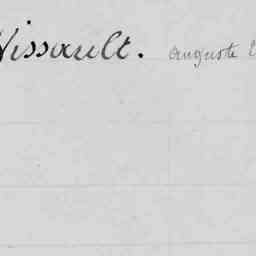 Nissault. Auguste